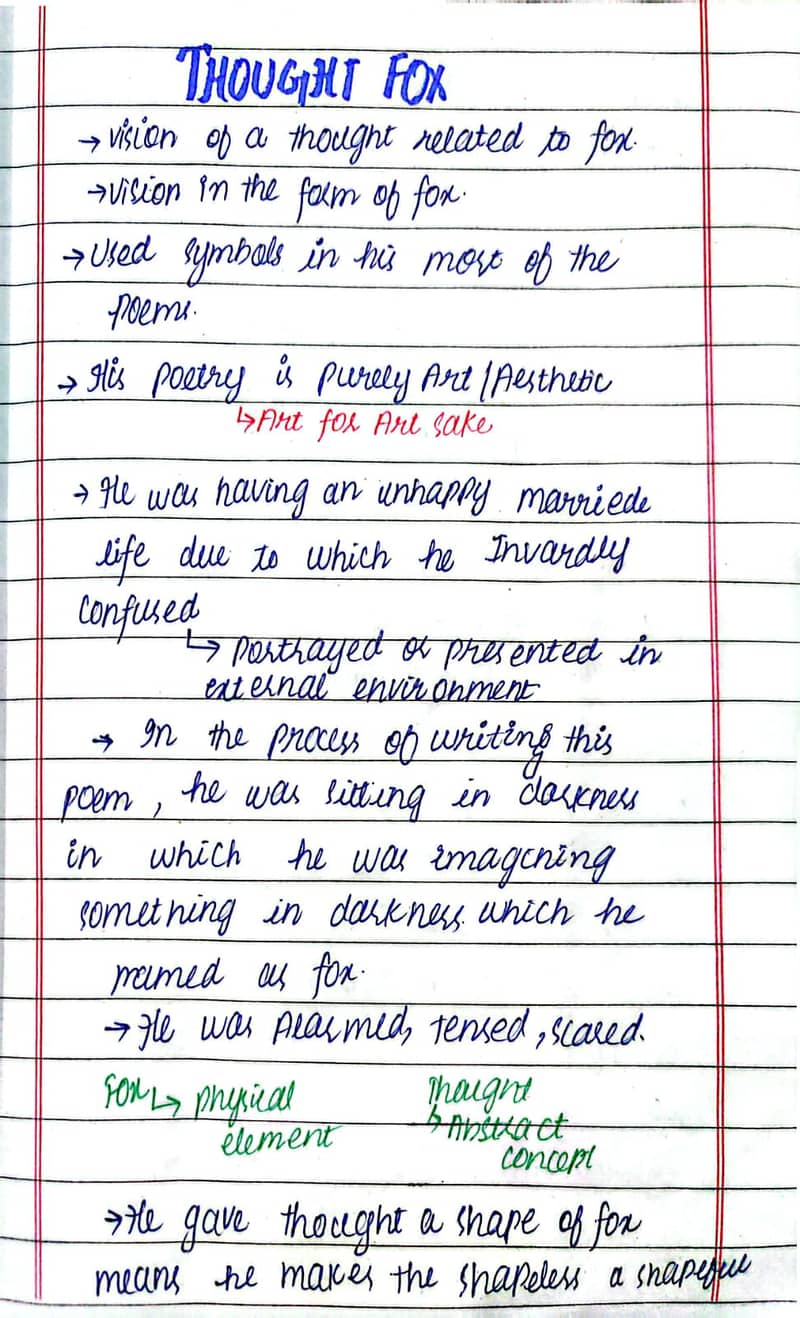 THOUGHT FOX
→ vision of a thought related to fox.
→ vision in the form of fox.
→ Used symbols in his most of the
poems.
→ His poetry is purely Art/Aesthetic
↳ Art for Art sake
→ He was having an unhappy marriede
life due to which he Invardly
confused
↳ portrayed or presented in
external environment
→ In the process of writing this
poem, he was sitting in darkness
in which he was imagining
something in darkness which he
named as fox.
→ He was Alarmed, tensed, scared.
Fox ↳ physical element
Thought ↳ Abstract concept
→ He gave thought a shape of fox
means he makes the shapeless a shapeful